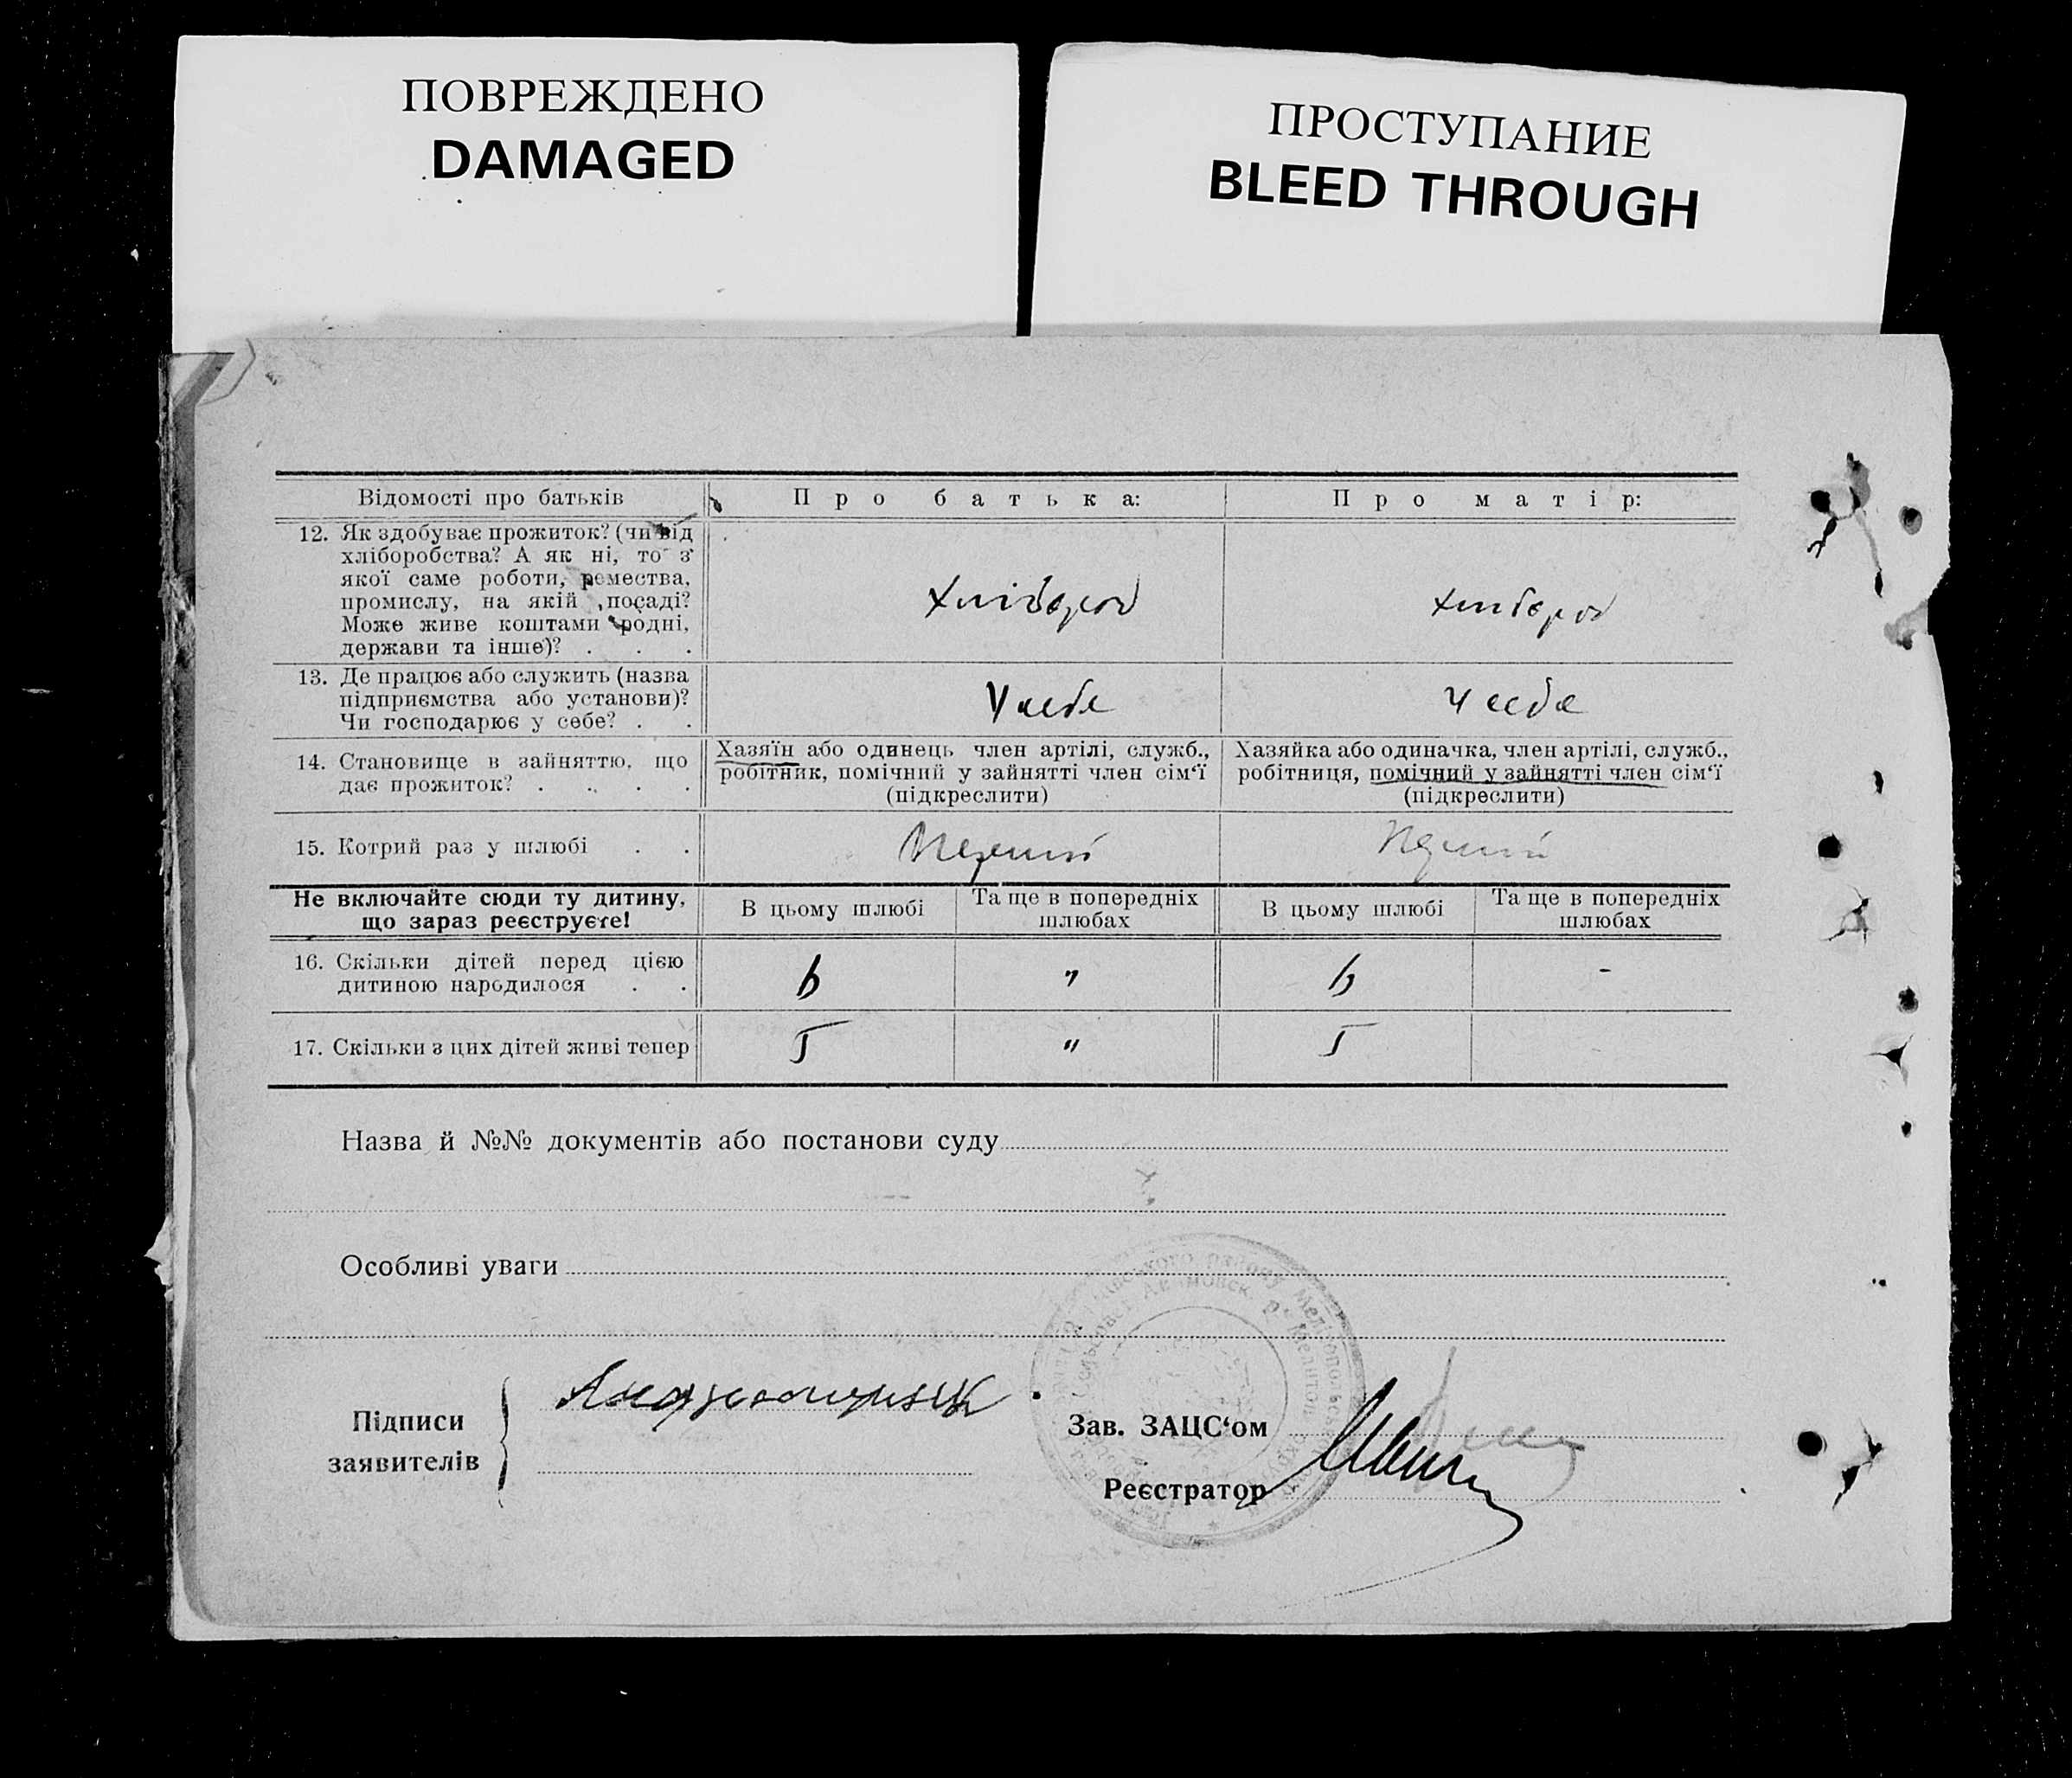 ПОВРЕЖДЕНО
DAMAGED
ПРОСТУПАНИЕ
BLEED THROUGH
Відомості про батьків
Про батька:
Про матір:
12. Як здобуває прожиток? (чи від
хліборобства? А як ні, то з
якої саме роботи, ремества,
промислу, на якій посаді?
Може живе коштами родні,
держави та інше)? . . .
Хлібороб
Хлібороб
13. Де працює або служить (назва
підприємства або установи)?
Чи господарює у себе? . .
У себе
У себе
14. Становище в зайняттю, що
дає прожиток? . . . .
Хазяїн або одинець член артілі, служб.,
робітник, помічний у зайнятті член сім‘ї
(підкреслити)
Хазяйка або одиначка, член артілі, служб.,
робітниця, помічний у зайнятті член сім‘ї
(підкреслити)
15. Котрий раз у шлюбі . .
Перший
Перший
Не включайте сюди ту дитину,
що зараз реєструєте!
В цьому шлюбі
Та ще в попередніх
шлюбах
В цьому шлюбі
Та ще в попередніх
шлюбах
16. Скільки дітей перед цією
дитиною народилося . .
6
"
6
-
17. Скільки з цих дітей живі тепер
5
"
5
Назва й №№ документів або постанови суду
Особливі уваги
Підписи
заявителів
Зав. ЗАЦС‘ом
Реєстратор